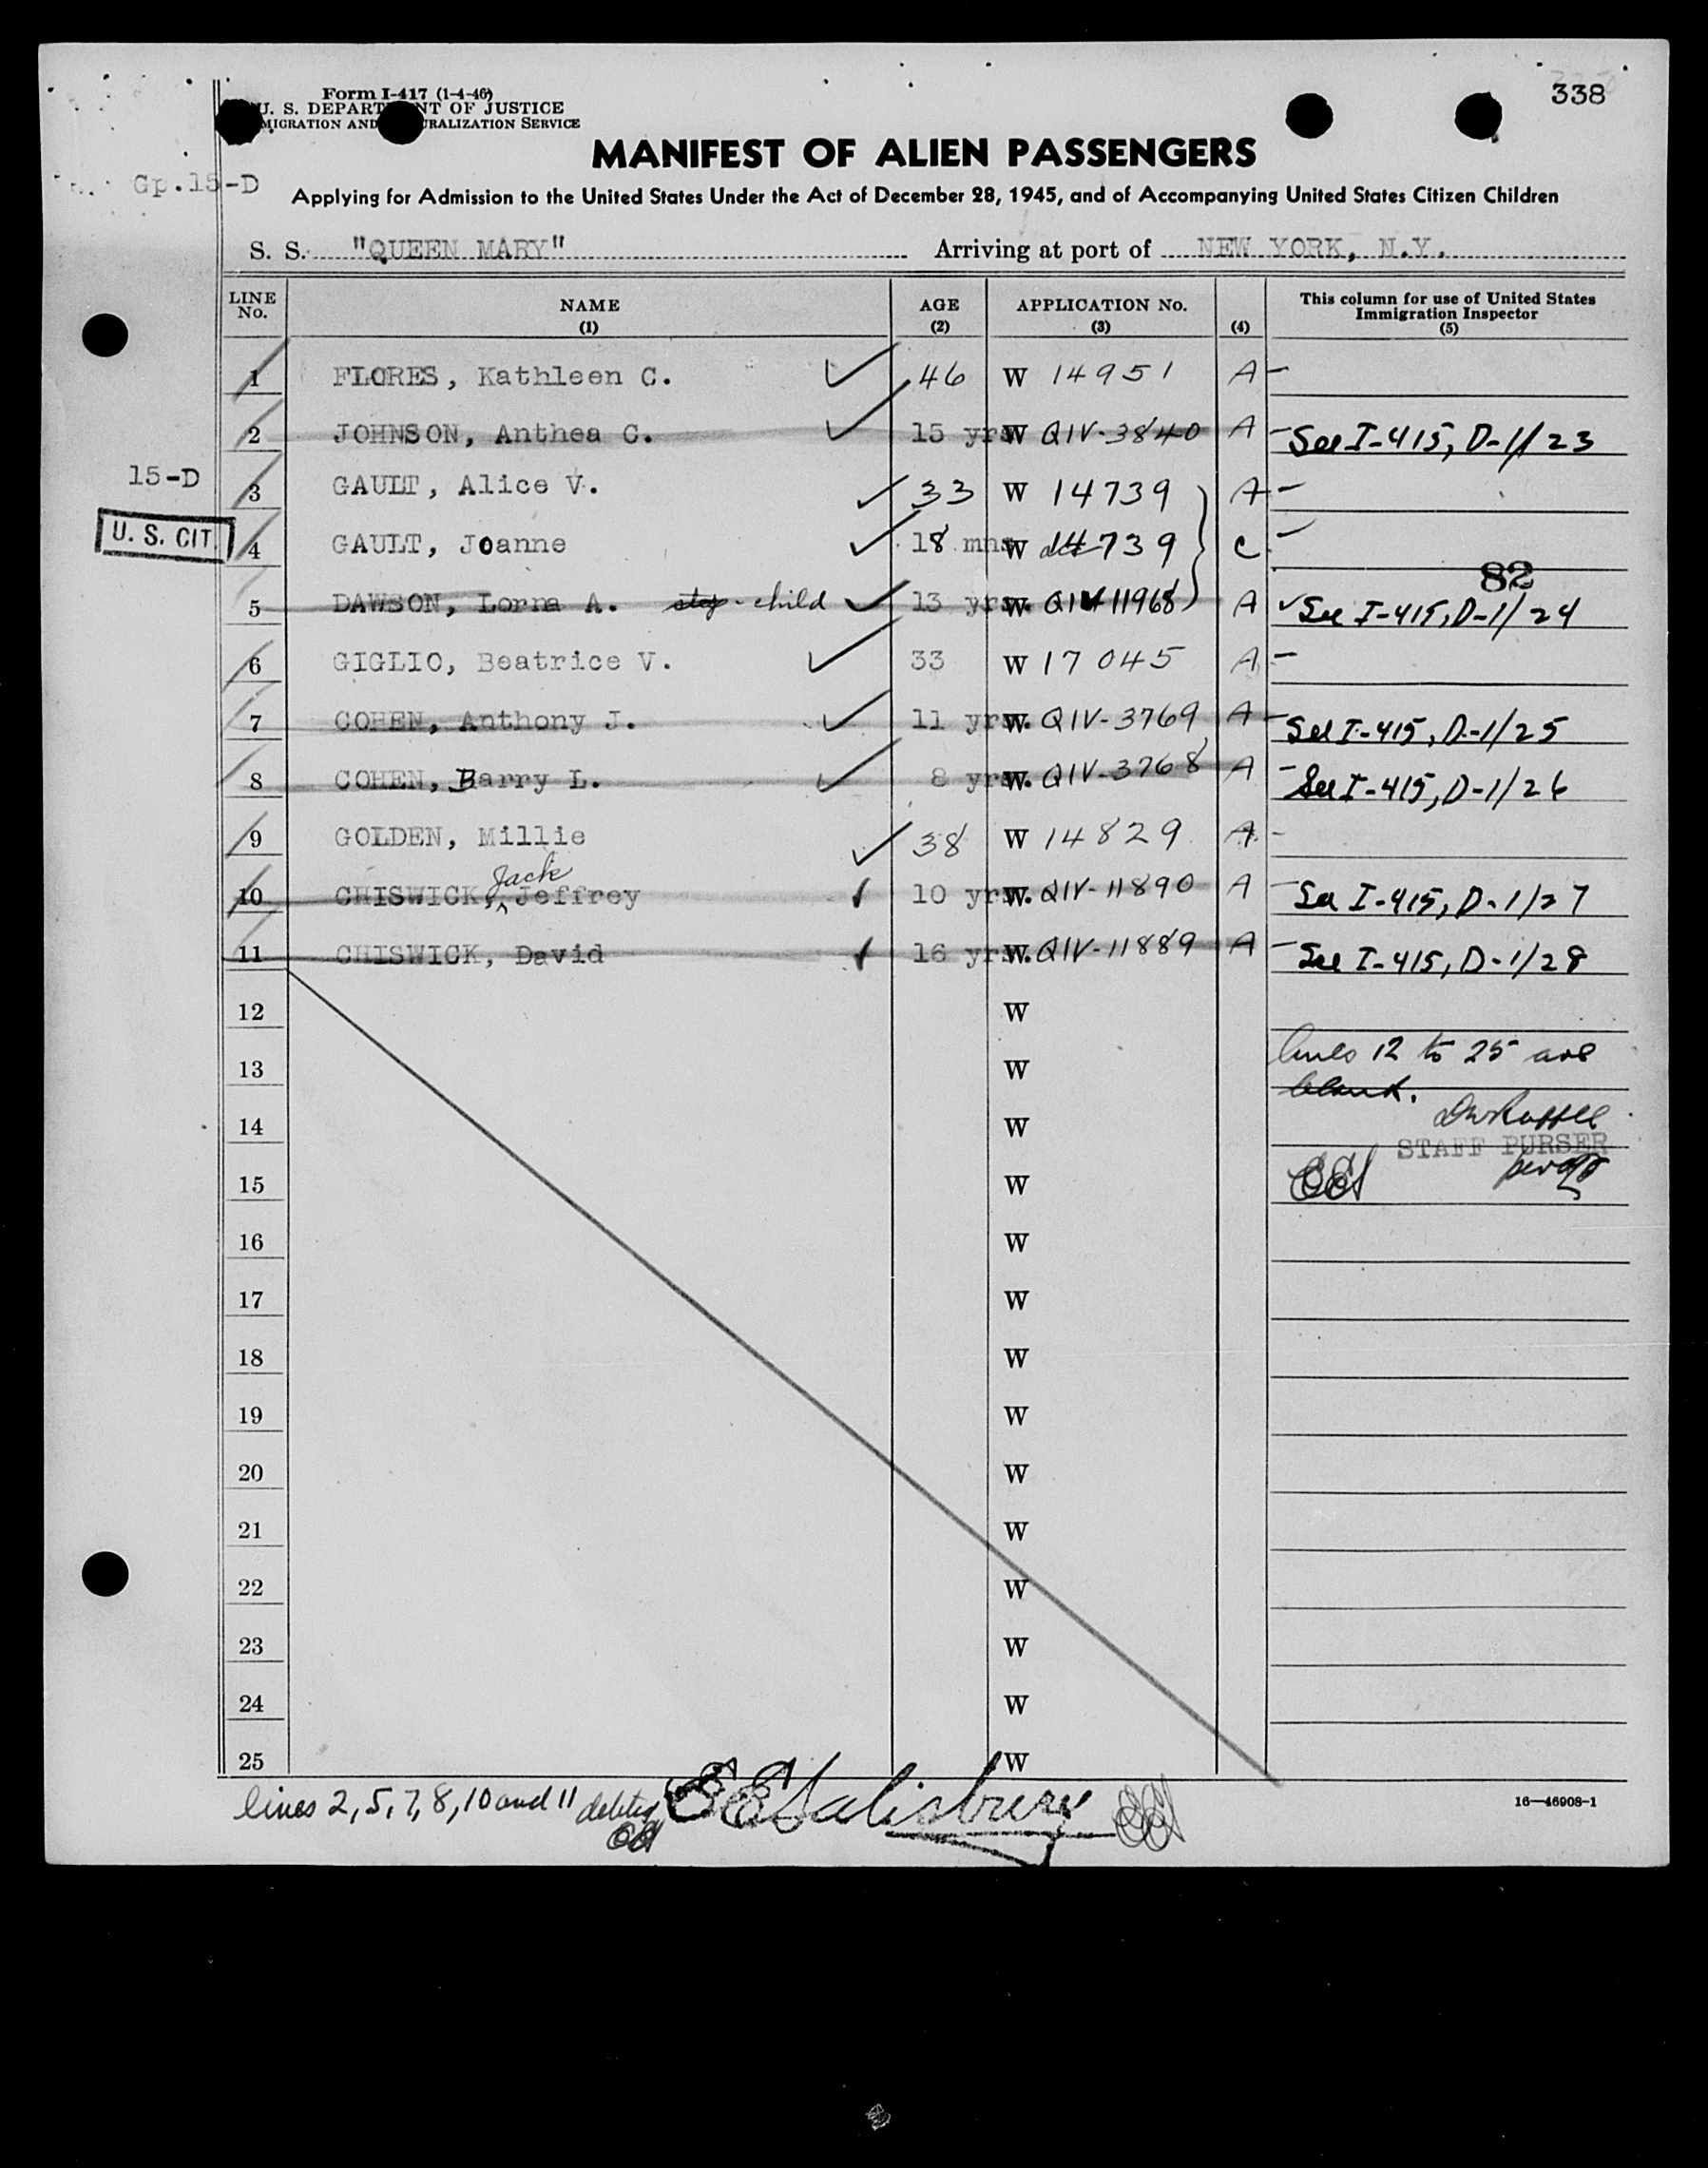 338
Form I-417 (1-4-46)
U. S. DEPART NT OF JUSTICE
MIGRATION AND URALIZATION SERVICE
MANIFEST OF ALIEN PASSENGERS
Gp.15-D
Applying for Admission to the United States Under the Act of December 28, 1945, and of Accompanying United States Citizen Children
S. S. "QUEEN MARY" Arriving at port of NEW YORK, N.Y.
LINE No. NAME (1) AGE (2) APPLICATION No. (3) (4) This column for use of United States Immigration Inspector (5)
1 FLORES, Kathleen C. 46 W 14951 A -
2 JOHNSON, Anthea C. 15 yrs. W QIV-3840 A - See I-415, D-1/23
15-D
3 GAULT, Alice V. 33 W 14739 A -
U. S. CIT.
4 GAULT, Joanne 18 mns. W 14739 C -
82
5 DAWSON, Lorna A. step-child 13 yrs. W QIV 11968 A See I-415, D-1/24
6 GIGLIO, Beatrice V. 33 W 17045 A -
7 COHEN, Anthony J. 11 yrs. W QIV-3769 A - See I-415, D-1/25
8 COHEN, Barry L. 8 yrs. W QIV-3768 A - See I-415, D-1/26
9 GOLDEN, Millie 38 W 14829 A -
Jack
10 CHISWICK, Jeffrey 10 yrs. W QIV-11890 A - See I-415, D-1/27
11 CHISWICK, David 16 yrs. W QIV-11889 A - See I-415, D-1/28
12 W
lines 12 to 25 are
13 W
blank.
14 W
STAFF PURSER
15 W
16 W
17 W
18 W
19 W
20 W
21 W
22 W
23 W
24 W
25 W
lines 2, 5, 7, 8, 10 and 11 EE Salisbury
16—46908-1